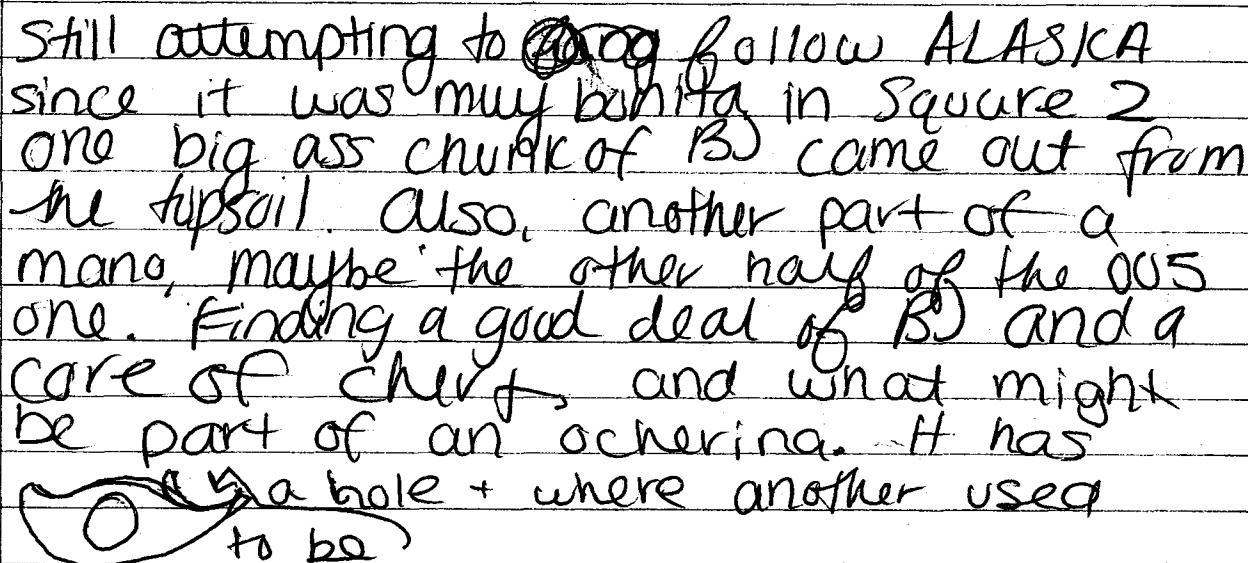 Still attempting to follow ALASKA
since it was muy bonita in Square 2
one big ass chunk of BJ came out from
the topsoil. Also, another part of a
mano, maybe the other half of the 005
one. Finding a good deal of BJ and a
core of chert, and what might
be part of an ocherina. It has
a hole + where another used
to be